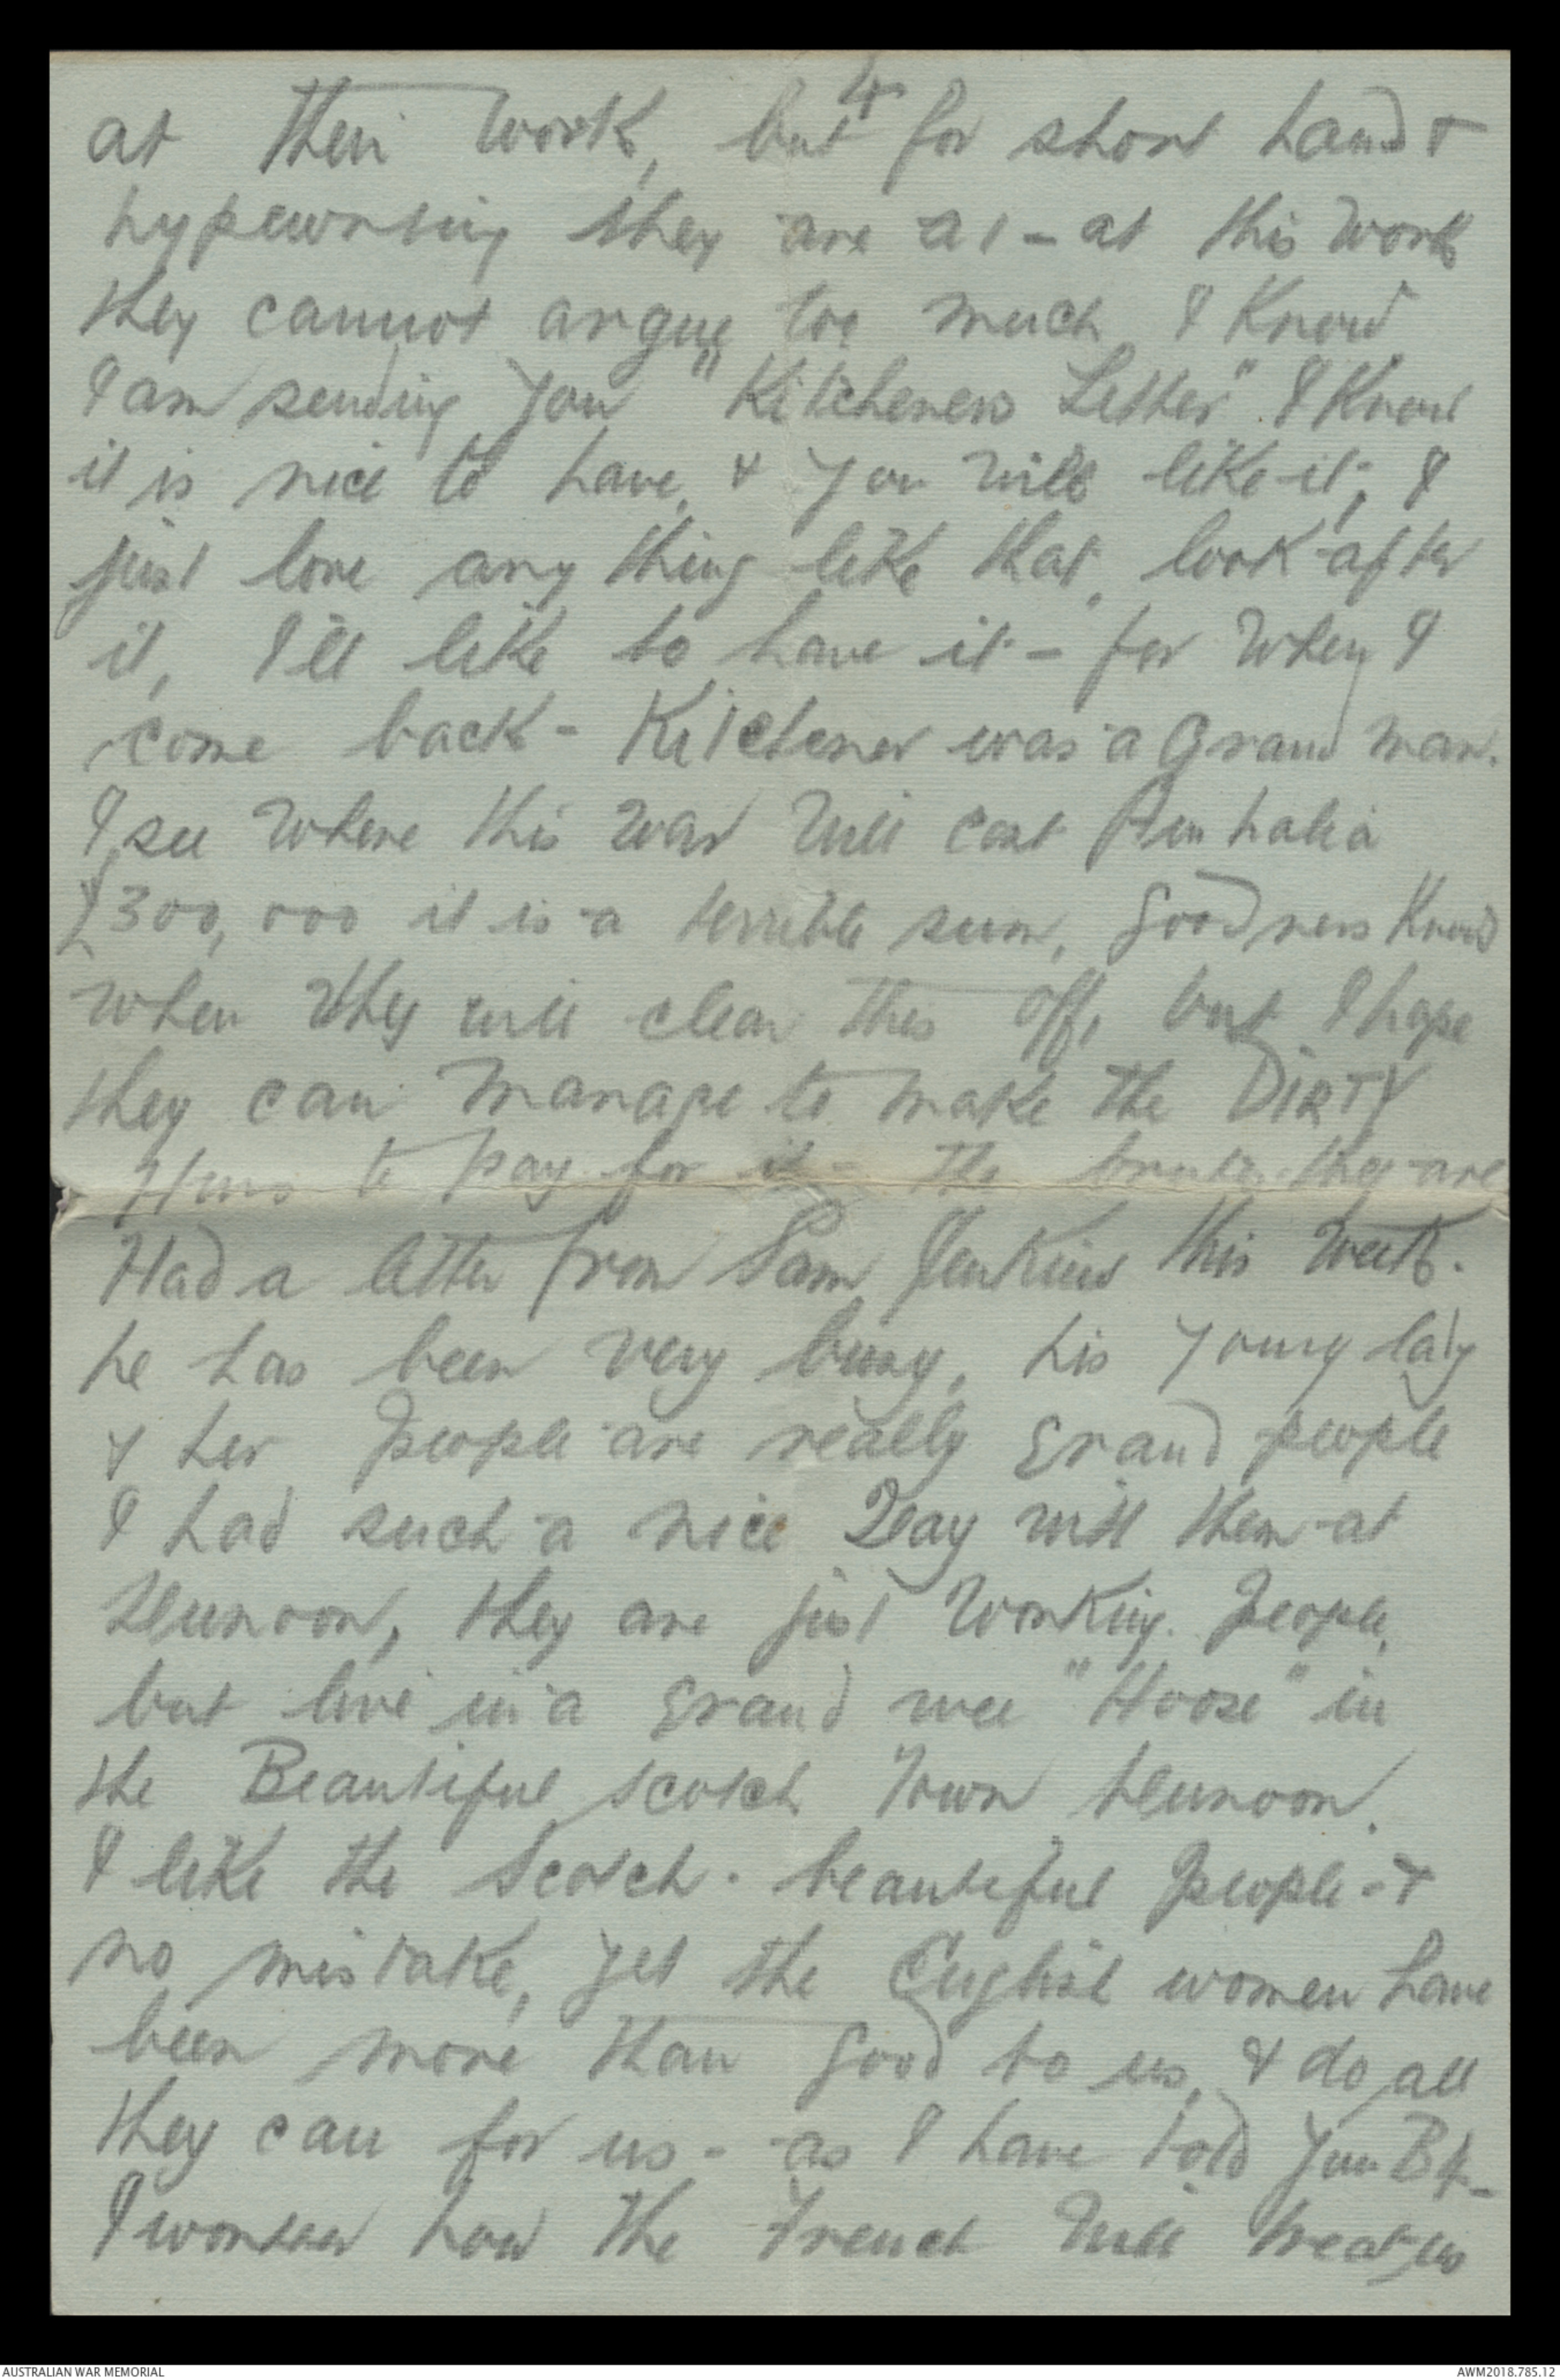 4
at their work, but for short hand &
typewriting they are a1 - at this work
they cannot argue too much I know
I am sending you "Kitcheners Letter" I know
it is nice to have, & you will like it, I
just love any thing like that, look after
it, I'll like to have it - for when I
come back - Kitchener was a Grand man.
I see where this war will cost Australia
£300,000 it is a terrible sum, goodness knows
when they will clear this off, but I hope
they can manage to make the DIRTY
Huns to pay for it - the brutes they are
Had a letter from Sam Jenkins this week.
he has been very busy, his young lady
& her people are really grand people
I had such a nice Day with them at
Dunoon, they are just working people,
but live in a grand wee "Hoose" in
the Beautiful Scotch Town Dunoon.
I like the Scotch. beautiful people - &
no mistake, yet the English women have
been more than good to us, & do all
they can for us - as I have told you B4 -
I wonder how the French will treat us
AUSTRALIAN WAR MEMORIAL
AWM2018.785.12